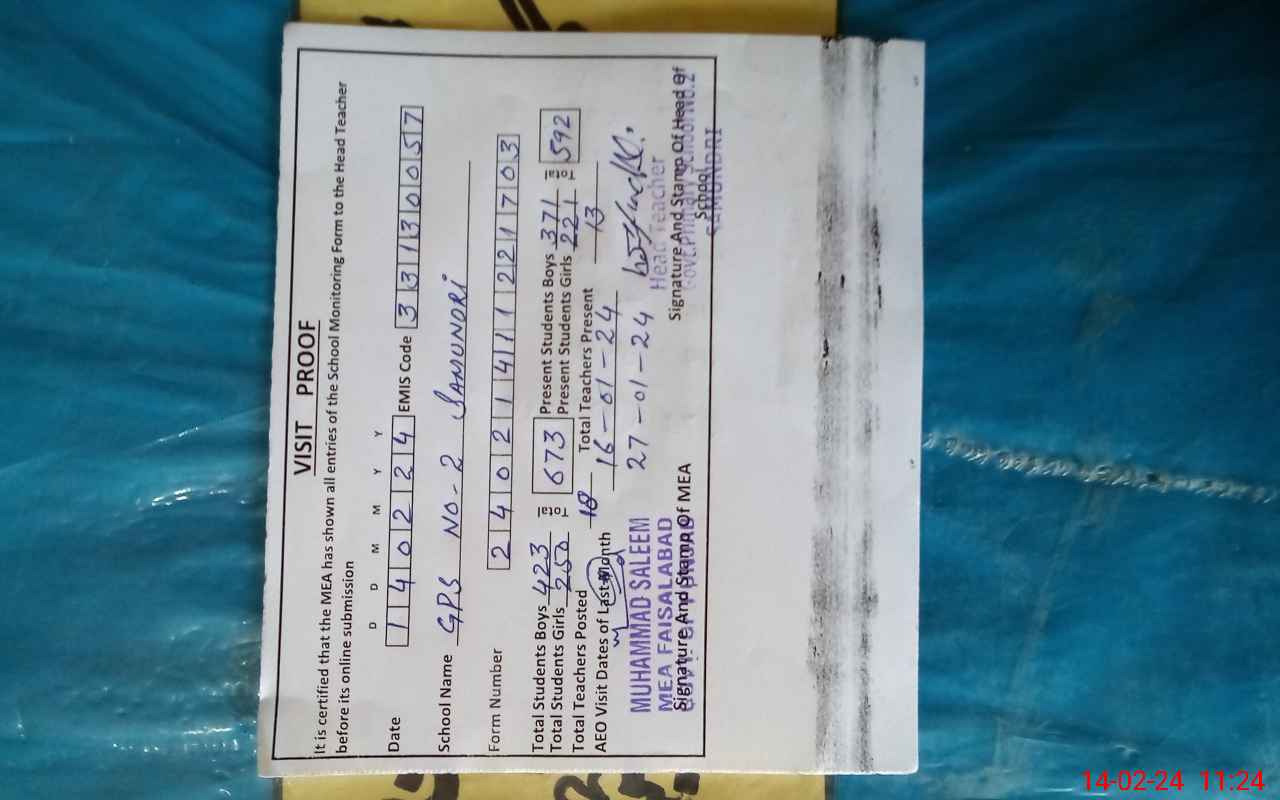 VISIT PROOF
It is certified that the MEA has shown all entries of the School Monitoring Form to the Head Teacher
before its online submission
D D M M Y Y
Date 1 4 0 2 2 4 EMIS Code 3 3 1 3 0 0 5 7
School Name GPS NO-2 SAMUNDRI
Form Number 2 4 0 2 1 4 1 1 2 2 1 7 0 3
Total Students Boys 423 673 Present Students Boys 371 592
Total Students Girls 250 Present Students Girls 221
Total Teachers Posted 18 Total Teachers Present 13
AEO Visit Dates of Last Month 16-01-24
27-01-24
MUHAMMAD SALEEM
MEA FAISALABAD
Signature And Stamp Of MEA
Head Teacher
Signature And Stamp Of Head Of
School
Govt. Primary School No.2
SAMUNDRI
14-02-24 11:24